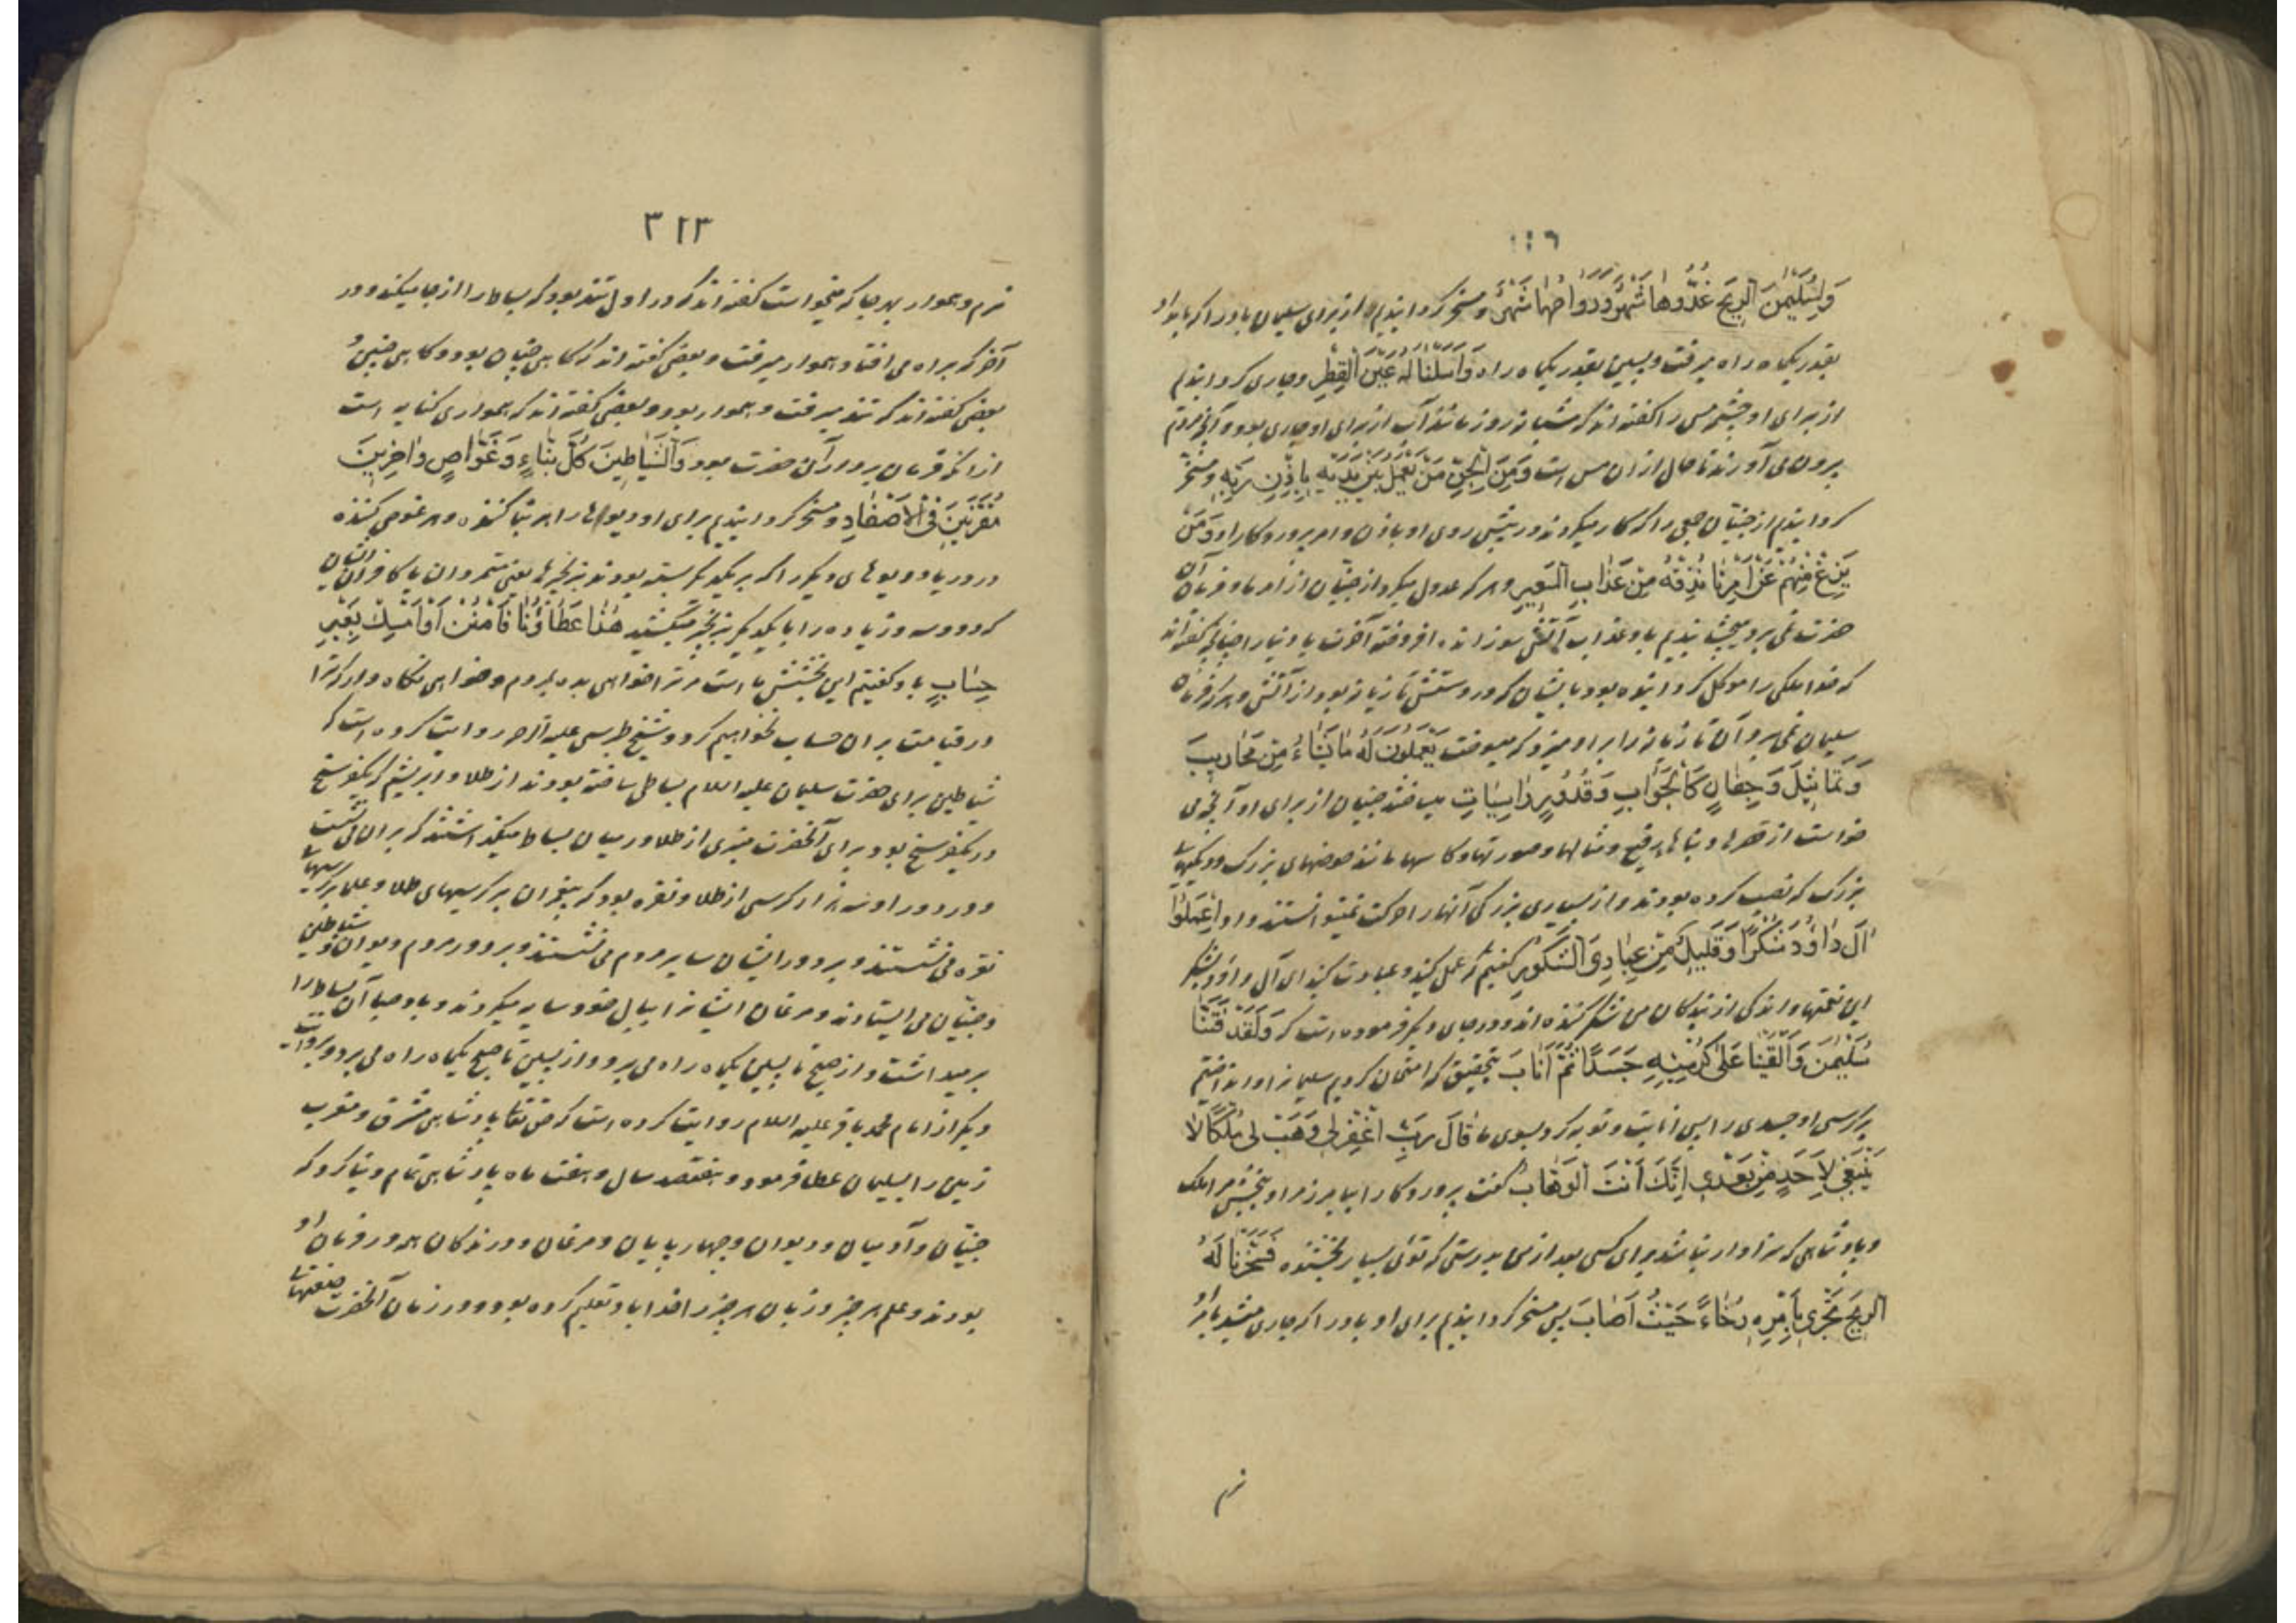 وَلِسُلَيْمٰنَ الرِّيحَ غُدُوُّهَا شَهْرٌ وَرَوَاحُهَا شَهْرٌ و مسخر گردانیدیم از برای سلیمان باد را که بامداد
بقدر یکماه راه میرفت و پسین بقدر یکماه راه وَاَسَلْنَا لَهُ عَيْنَ الْقِطْرِ و جاری گردانیدیم
از برای او چشمه مس را گفته‌اند که سه شبانه روز مانند آب از برای او جاری بود و آنچه مردم
بیرون می‌آورند تا حال از ان مس است وَمِنَ الْجِنِّ مَنْ يَعْمَلُ بَيْنَ يَدَيْهِ بِاِذْنِ رَبِّهِ و مسخر
گردانیدیم از جنیان جمعی را که کار میکردند در پیش روی او باذن و امر پروردگار او وَمَنْ
يَزِغْ مِنْهُمْ عَنْ اَمْرِنَا نُذِقْهُ مِنْ عَذَابِ السَّعِيرِ و هر که عدول میکرد از جنیان از امر ما و فرمان آن
حضرت نمی‌برد میچشانیدیم باو عذاب آتش سوزاننده افروخته آخرت یا دنیا را چنانچه گفته‌اند
که خدا ملکی را موکل گردانیده بود بایشان که در دستش تازیانه بود از آتش و هر که فرمان
سلیمان نمی‌برد آن تازیانه را بر او میزد که میسوخت يَعْمَلُونَ لَهُ مَا يَشَاءُ مِنْ مَحَارِيبَ
وَتَمَاثِيلَ وَجِفَانٍ كَالْجَوَابِ وَقُدُورٍ رَاسِيَاتٍ میساختند جنیان از برای او آنچه می
خواست از قصرها و بناهای رفیع و مثالها و صورتها و کاسها مانند حوضهای بزرگ و دیگهای
بزرگ که نصب کرده بودند و از بسیاری بزرگی آنها را حرکت نمیتوانستند داد اِعْمَلُوا
اٰلَ دَاوُدَ شُكْرًا وَقَلِيلٌ مِنْ عِبَادِيَ الشَّكُورُ گفتیم که عمل کنید و عبادت کنید ای آل داود بشکر
این نعمتها و اندکی از بندگان من شکر کننده‌اند و در جای دیگر فرموده است که وَلَقَدْ فَتَنَّا
سُلَيْمٰنَ وَاَلْقَيْنَا عَلٰى كُرْسِيِّهِ جَسَدًا ثُمَّ اَنَابَ بتحقیق که امتحان کردیم سلیمانرا و انداختیم
بر کرسی او جسدی را پس انابت و توبه کرد بسوی ما قَالَ رَبِّ اغْفِرْ لِي وَهَبْ لِي مُلْكًا لَا
يَنْبَغِي لِاَحَدٍ مِنْ بَعْدِي اِنَّكَ اَنْتَ الْوَهَّابُ گفت پروردگارا بیامرز مرا و ببخش مرا ملک
و پادشاهی که سزاوار نباشد برای کسی بعد از من بدرستی که توئی بسیار بخشنده فَسَخَّرْنَا لَهُ
الرِّيحَ تَجْرِي بِاَمْرِهِ رُخَاءً حَيْثُ اَصَابَ پس مسخر گردانیدیم برای او باد را که جاری میشد بامر او
نرم
٣٢٣
نرم و هموار بهر جا که میخواست گفته‌اند که در اول تند بود که بساط را از جا میکند و در
آخر که براه می‌افتاد هموار میرفت و بعضی گفته‌اند که گاهی چنان بود و گاهی چنین و
بعضی گفته‌اند که تند میرفت و هموار بود و بعضی گفته‌اند که همواری کنایه است
از آنکه فرمان بردار آن حضرت بود وَالشَّيَاطِينَ كُلَّ بَنَّاءٍ وَغَوَّاصٍ وَاٰخَرِينَ
مُقَرَّنِينَ فِي الْاَصْفَادِ و مسخر گردانیدیم برای او دیوها را هر بنا کننده و هر غوص کننده
در دریا و دیوهای دیگر را که بر یکدیگر بسته بودند بزنجیرها یعنی متمردان یا کافران ایشان
که دو و سه و زیاده را با یکدیگر بزنجیر میکشید هٰذَا عَطَاؤُنَا فَامْنُنْ اَوْ اَمْسِكْ بِغَيْرِ
حِسَابٍ باو گفتیم این بخشش ما است مر ترا خواهی بده بمردم و خواهی نگاه دار که ترا
در قیامت بر ان حساب نخواهیم کرد و شیخ طبرسی علیه الرحمه روایت کرده است که
شیاطین برای حضرت سلیمان علیه السلام بساطی ساخته بودند از طلا و ابریشم که یکفرسخ
در یکفرسخ بود و برای آنحضرت منبری از طلا در میان بساط میگذاشتند که بر ان می‌نشست
و در دور او سه هزار کرسی از طلا و نقره بود که پیغمبران بر کرسیهای طلا و علما بر کرسیهای
نقره می‌نشستند و بر دور ایشان سایر مردم می‌نشستند و بر دور مردم دیوان و شیاطین
و جنیان می‌ایستادند و مرغان ایشانرا ببال خود سایه میکردند و باد صبا آن بساط را
بر میداشت و از صبح تا پسین یکماه راه می‌برد و از پسین تا صبح یکماه راه می‌برد و بروایت
دیگر از امام محمد باقر علیه السلام روایت کرده است که حق تعالی پادشاهی مشرق و مغرب
زمین را بسلیمان عطا فرمود و هفتصد سال و هفت ماه پادشاهی تمام دنیا کرد که
جنیان و آدمیان و دیوان و چهارپایان و مرغان و درندگان همه در فرمان او
بودند و علم هر چیز و زبان هر چیز را خدا باو تعلیم کرده بود و در زمان آنحضرت صنعتهای